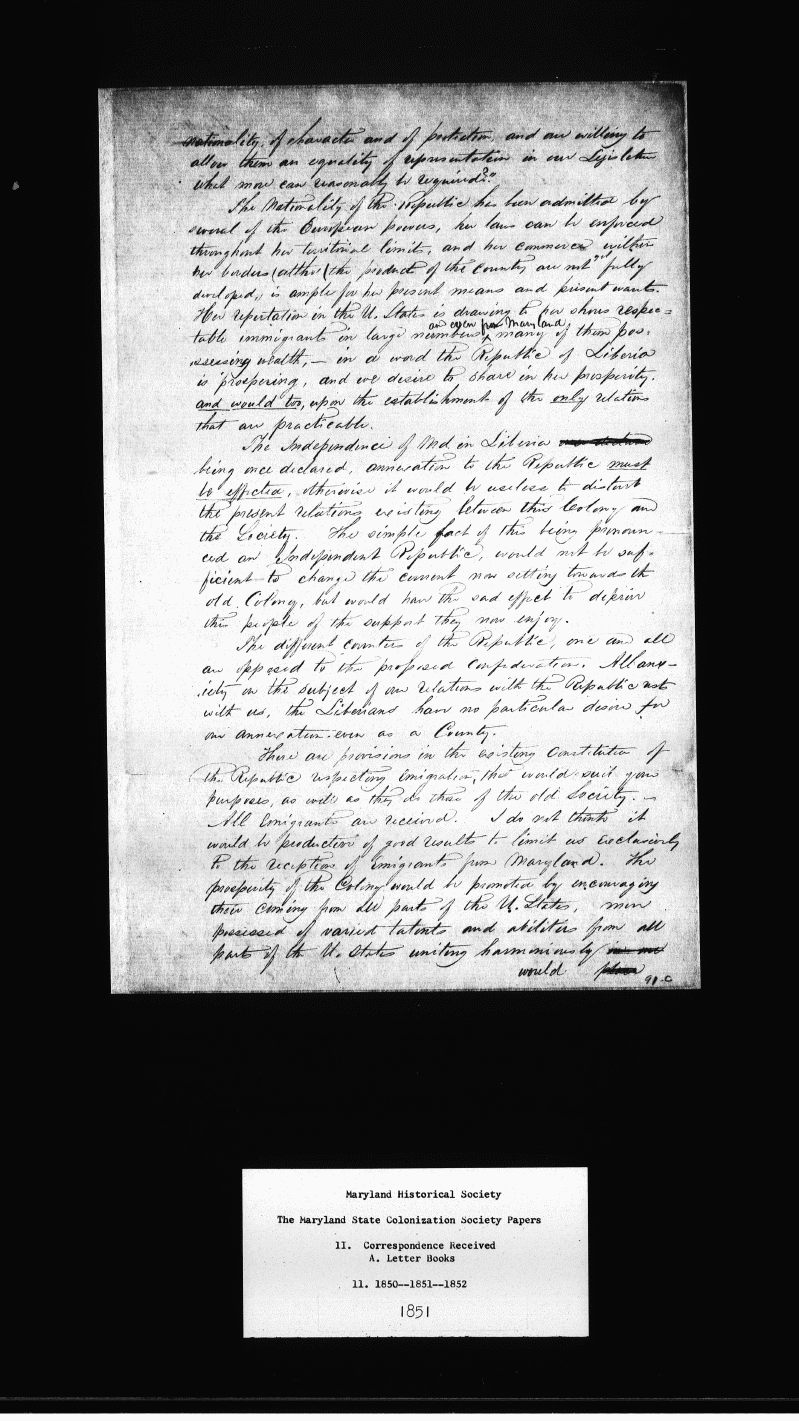 nationality, of character and of protection, and are willing to
allow them an equality of representation in our Legislature
what more can reasonably be required?"
The Nationality of the republic has been admitted by
several of the European powers, her laws can be enforced
throughout her territorial limits, and her commerce within
her borders (altho' (the products of the Country are not yet fully
developed, is ample for her present means and present wants.
Her reputation in the U. States is drawing to her shores respec=
and even from Maryland
table immigrants in large numbers many of them pos=
ssessing wealth, — in a word the Republic of Liberia
is prospering, and we desire to share in her prosperity.
and would too, upon the establishment of the only relations
that are practicable.
The Independence of Md. in Liberia
being once declared, annexation to the Republic must
be effected, otherwise it would be useless to disturb
the present relations existing between this Colony and
the Society. The simple fact of this being pronoun=
ced an Independent Republic, would not be suf=
ficient to change the current now setting towards the
old Colony, but would have the sad effect to deprive
this people of the support they now enjoy.
The different counties of the Republic, one and all
are opposed to the proposed confederation. All anx=
iety on the subject of our relations with the Republic rests
with us, the Liberians have no particular desire for
our annexation even as a County.
There are provisions in the existing Constitution of
the Republic respecting emigration, that would suit your
purposes, as well as they do those of the old Society. —
All Emigrants are received. I do not think it
would be productive of good results to limit us exclusively
to the reception of Emigrants from Maryland. The
prosperity of the Colony would be promoted by encouraging
their coming from all parts of the U. States, men
possessed of varied talents and abilities from all
parts of the U. States uniting harmoniously in one
would place
91-c
Maryland Historical Society
The Maryland State Colonization Society Papers
11. Correspondence Received
A. Letter Books
11. 1850--1851--1852
1851